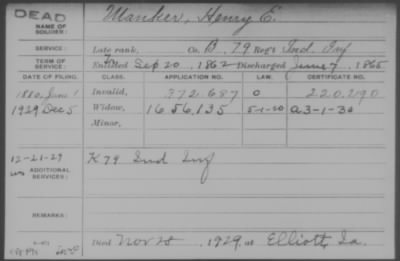 DEAD
NAME OF SOLDIER: Manker, Henry E.
SERVICE: Late rank, Co. B, 79 Reg't Ind. Inf
TERM OF SERVICE: Enlisted Sep 20, 1862 Discharged June 7, 1865
DATE OF FILING. CLASS. APPLICATION NO. LAW. CERTIFICATE NO.
1880, June 1 Invalid, 372.687 0 220.290
1929 Dec 5 Widow, 1656,135 5-1-20 a-3-1-30
Minor,
12-21-29
ADDITIONAL SERVICES: K 79 Ind Inf
REMARKS:
Died Nov 28, 1929, at Elliott, Ia.